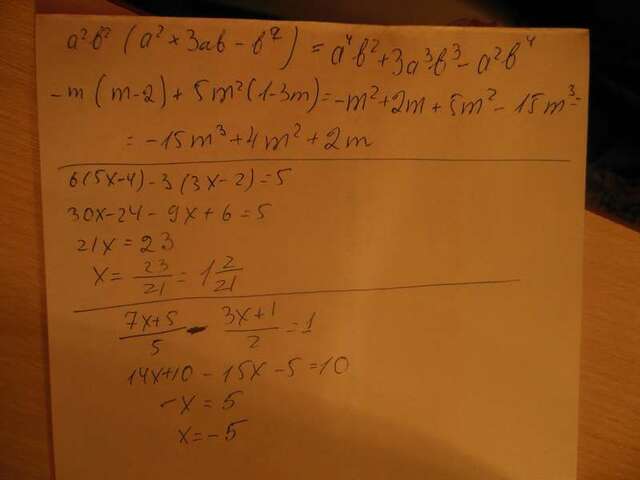 a²b² (a² + 3ab - b²) = a⁴b² + 3a³b³ - a²b⁴
-m (m-2) + 5m² (1-3m) = -m² + 2m + 5m² - 15m³ =
= -15m³ + 4m² + 2m
6(5x-4) - 3(3x-2) = 5
30x - 24 - 9x + 6 = 5
21x = 23
x = 23/21 = 1 2/21
7x+5/5 - 3x+1/2 = 1
14x+10 - 15x - 5 = 10
-x = 5
x = -5